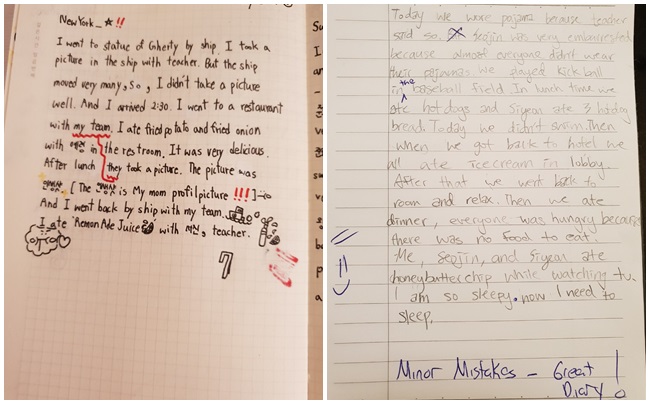 New York_☆!!
I went to statue of Liberty by ship. I took a
picture in the ship with teacher. But the ship
moved very many, so, I didn't take a picture
well. And I arrived 2:30. I went to a restaurant
with my team. I ate fried potato and fried onion
with in the restroom. It was very delicious.
After lunch they took a picture. The picture was
[The is My mom profil picture !!!]
And I went back by ship with my team.
I ate "Remon Ade Juice" with , teacher.
7
Today we wore pajams because teacher
said so. Seojin was very embarrested
because almost everyone didn't wear
their pajammas We played kick ball
in the baseball field. In lunch time we
ate hotdogs and Siyeon ate 3 hotdog
bread. Today we didn't swim. Then
when we got back to hotel we
all ate icecream in lobby.
After that we went back to
room and relax. Then we ate
dinner, everyone was hungry because
there was no food to eat.
Me, Seojin, and Siyeon ate
honeybutterchip while watching tv.
I am so sleepy. now I need to
sleep.
Minor Mistakes – Great
Diary!